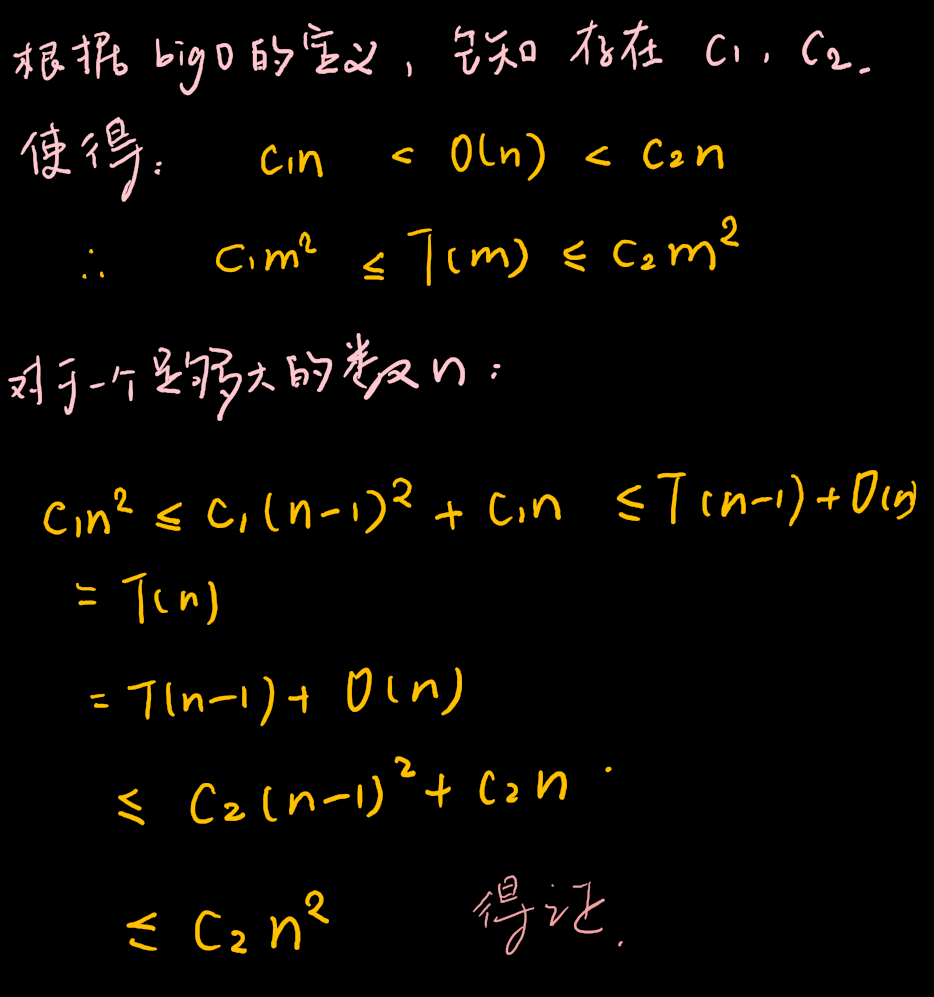 根据 big O 的定义, 已知 存在 C₁, C₂.
使得: C₁n < O(n) < C₂n
∴ C₁m² ≤ T(m) ≤ C₂m²
对于一个足够大的数 n:
C₁n² ≤ C₁(n-1)² + C₁n ≤ T(n-1) + O(n)
= T(n)
= T(n-1) + O(n)
≤ C₂(n-1)² + C₂n.
≤ C₂n² 得证.